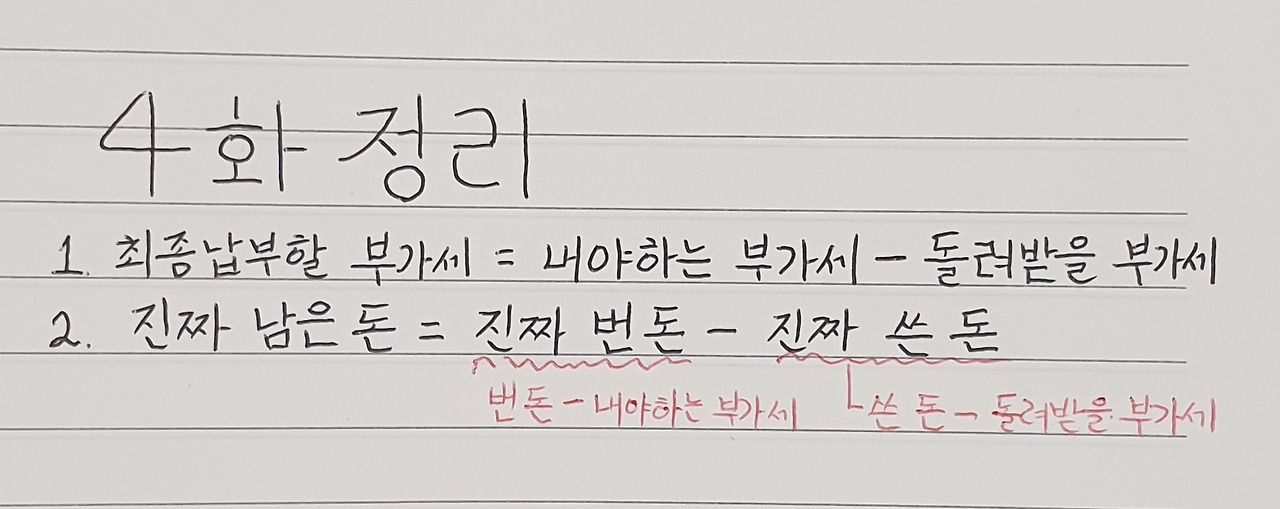 4화 정리
1. 최종납부할 부가세 = 내야하는 부가세 - 돌려받을 부가세
2. 진짜 남은 돈 = 진짜 번돈 - 진짜 쓴 돈
번돈 - 내야하는 부가세 쓴 돈 - 돌려받을 부가세